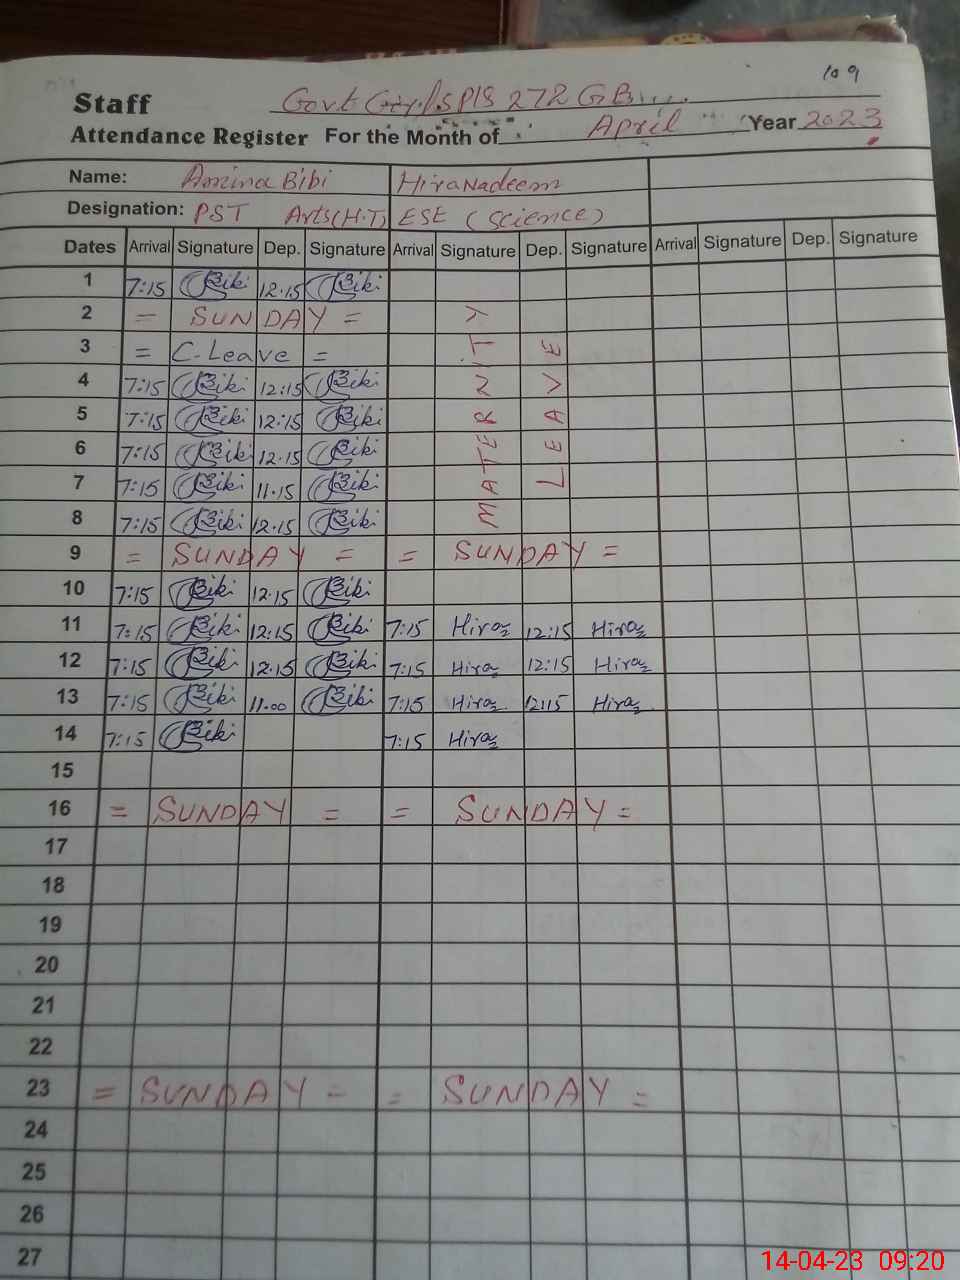 109
Staff Govt Girls P/S 272 GB
Attendance Register For the Month of April Year 2023
Name: Amina Bibi Hira Nadeem
Designation: PST Arts (H.T) ESE (Science)
Dates Arrival Signature Dep. Signature Arrival Signature Dep. Signature Arrival Signature Dep. Signature
1 7:15 Bibi 12.15 Bibi
2 = SUNDAY =
3 = C-Leave =
4 7:15 Bibi 12:15 Bibi
5 7:15 Bibi 12:15 Bibi
6 7:15 Bibi 12.15 Bibi
7 7:15 Bibi 11.15 Bibi
8 7:15 Bibi 12.15 Bibi
MATERNITY
LEAVE
9 = SUNDAY = = SUNDAY =
10 7:15 Bibi 12.15 Bibi
11 7:15 Bibi 12:15 Bibi 7:15 Hira 12:15 Hira
12 7:15 Bibi 12.15 Bibi 7:15 Hira 12:15 Hira
13 7:15 Bibi 11.00 Bibi 7:15 Hira 12:15 Hira
14 7:15 Bibi 7:15 Hira
15
16 = SUNDAY = = SUNDAY =
17
18
19
20
21
22
23 = SUNDAY = = SUNDAY =
24
25
26
27
14-04-23 09:20